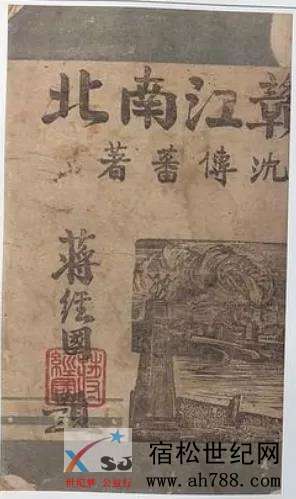 贛江南北
沈傳蕃著
蔣經國題
SJ
世纪梦 公益行
宿松世纪网
www.ah788.com